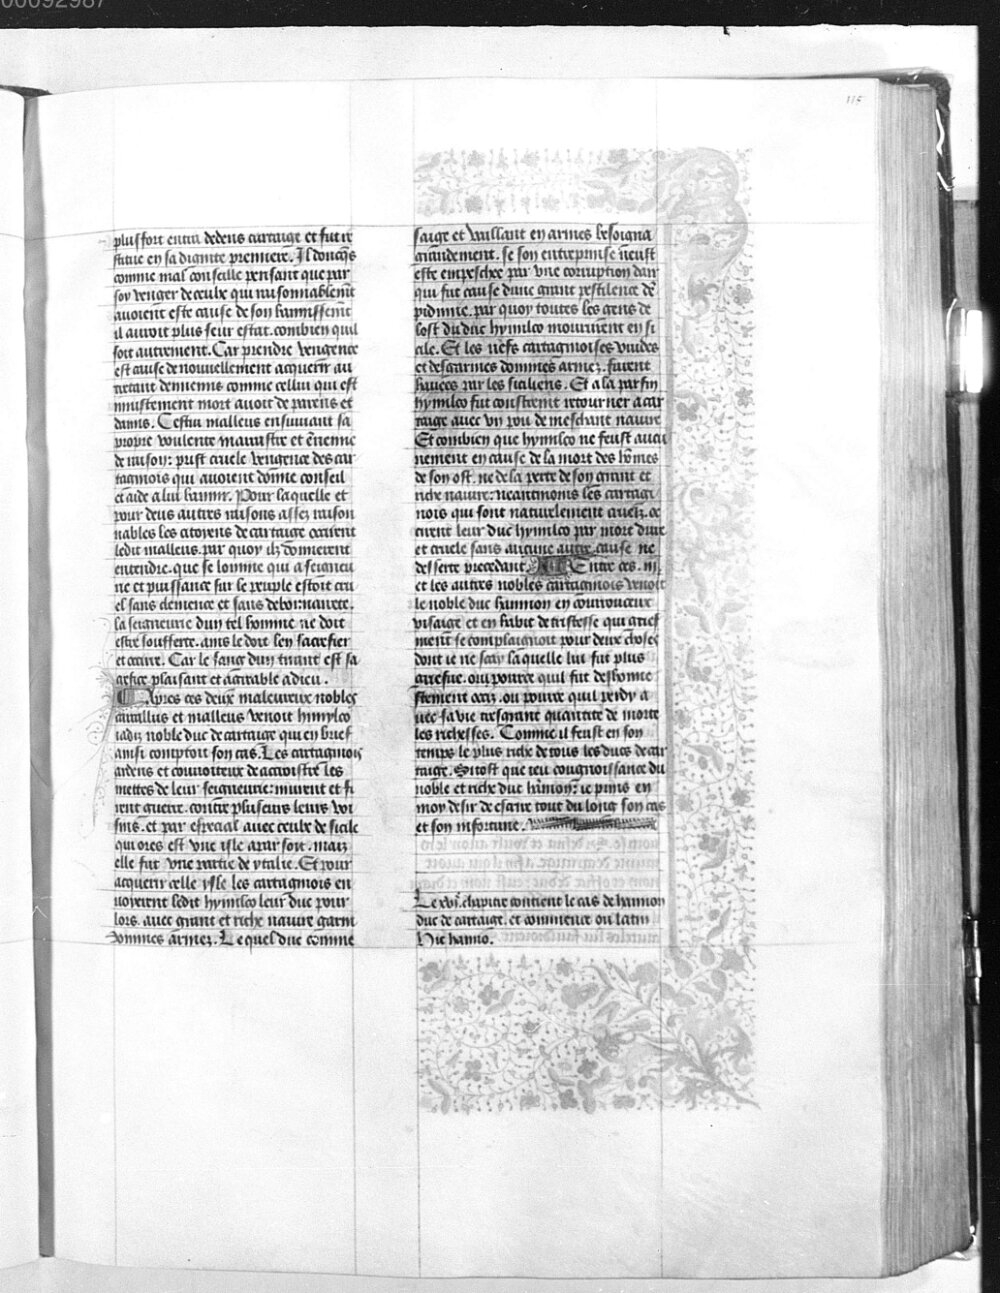 00092987
115
plus fort entra dedens cartaige et fut re
stitue en sa dignite premiere. Il doncqs
comme mal conseille pensant que par
soy venger de ceulx qui raisonnablemt
auoient este cause de son bannissemt
il auroit plus seur estat. combien quil
soit autrement. Car prendre vengence
est cause de nouuellement acquerir au
tretant dennemis comme cellui qui est
iniustement mort auoit de parens et
damis. Cestui malleus ensuiuant sa
propre voulente marrastre et ennemie
de raison: prist cruele vengence des car
taginois qui auoient donne conseil
et aide a lui bannir. Pour laquelle et
pour deux autres raisons assez raison
nables les citoyens de cartaige occirent
ledit malleus. par quoy ilz donnerent
entendre. que se lomme qui a seigneu
rie et puissance sur le peuple estoit cru
el sans clemence et sans debonnairete.
la seigneurie dun tel homme ne doit
estre soufferte. ains le doit len sacrefier
et occire. Car le sang dun tirant est sa
crefice plaisant et agreable a dieu.
Apres ces deux maleureux nobles
cartallus et malleus venoit himylco
iadiz noble duc de cartaige qui en brief
ainsi comptoit son cas. Les cartaginois
ardens et couuoiteux de accroistre les
mettes de leur seigneurie: murent et fi
rent guerre. contre pluseurs leurs voi
sins. et par especial auec ceulx de sicile
qui ores est vne isle a par soy. maiz
elle fut vne partie de ytalie. Et pour
acquerir celle ysle les cartaginois en
uoierent ledit hymilco leur duc pour
lors. auec grant et riche nauire garni
dommes armez. Le quel duc comme
saige et vaillant en armes besoigna
grandement. se son entreprinse neust
este empeschee par vne corruption dair
qui fut cause dune grant pestilence de
pidimie. par quoy toutes les gens de
lost du duc hymilco moururent en si
cile. Et les nefs cartaginoises vuides
et desgarnies dommes armez. furent
hauees par les siciliens. Et a la par fin
hymilco fut constreint retourner a car
taige auec vn pou de meschant nauire
Et combien que hymilco ne feust aucu
nement en cause de la mort des homes
de son ost. ne de la perte de son grant et
riche nauire: neantmoins les cartagi
nois qui sont naturelement cruelz. oc
cirent leur duc hymilco par mort dure
et cruele sans aucune autre cause ne
desserte precedant. Entre ces. iii.
et les autres nobles cartaginois venoit
le noble duc hannon en courrouceux
visaige et en habit de tristesse qui grief
ment se complaignoit pour deux choses
dont ie ne scay laquelle lui fut plus
griefue. ou pource quil fut deshonne
stement occiz. ou pource quil perdy a
uec sa vie tresgrant quantite de morte
les richesses. Comme il feust en son
temps le plus riche de tous les ducs de car
taige. Sitost que ieu congnoissance du
noble et riche duc hannon: ie prins en
moy desir de escrire tout du long son cas
et son infortune.
Le xvi. chapitre contient le cas de hannon
duc de cartaige. et commence ou latin
Hic hanno.